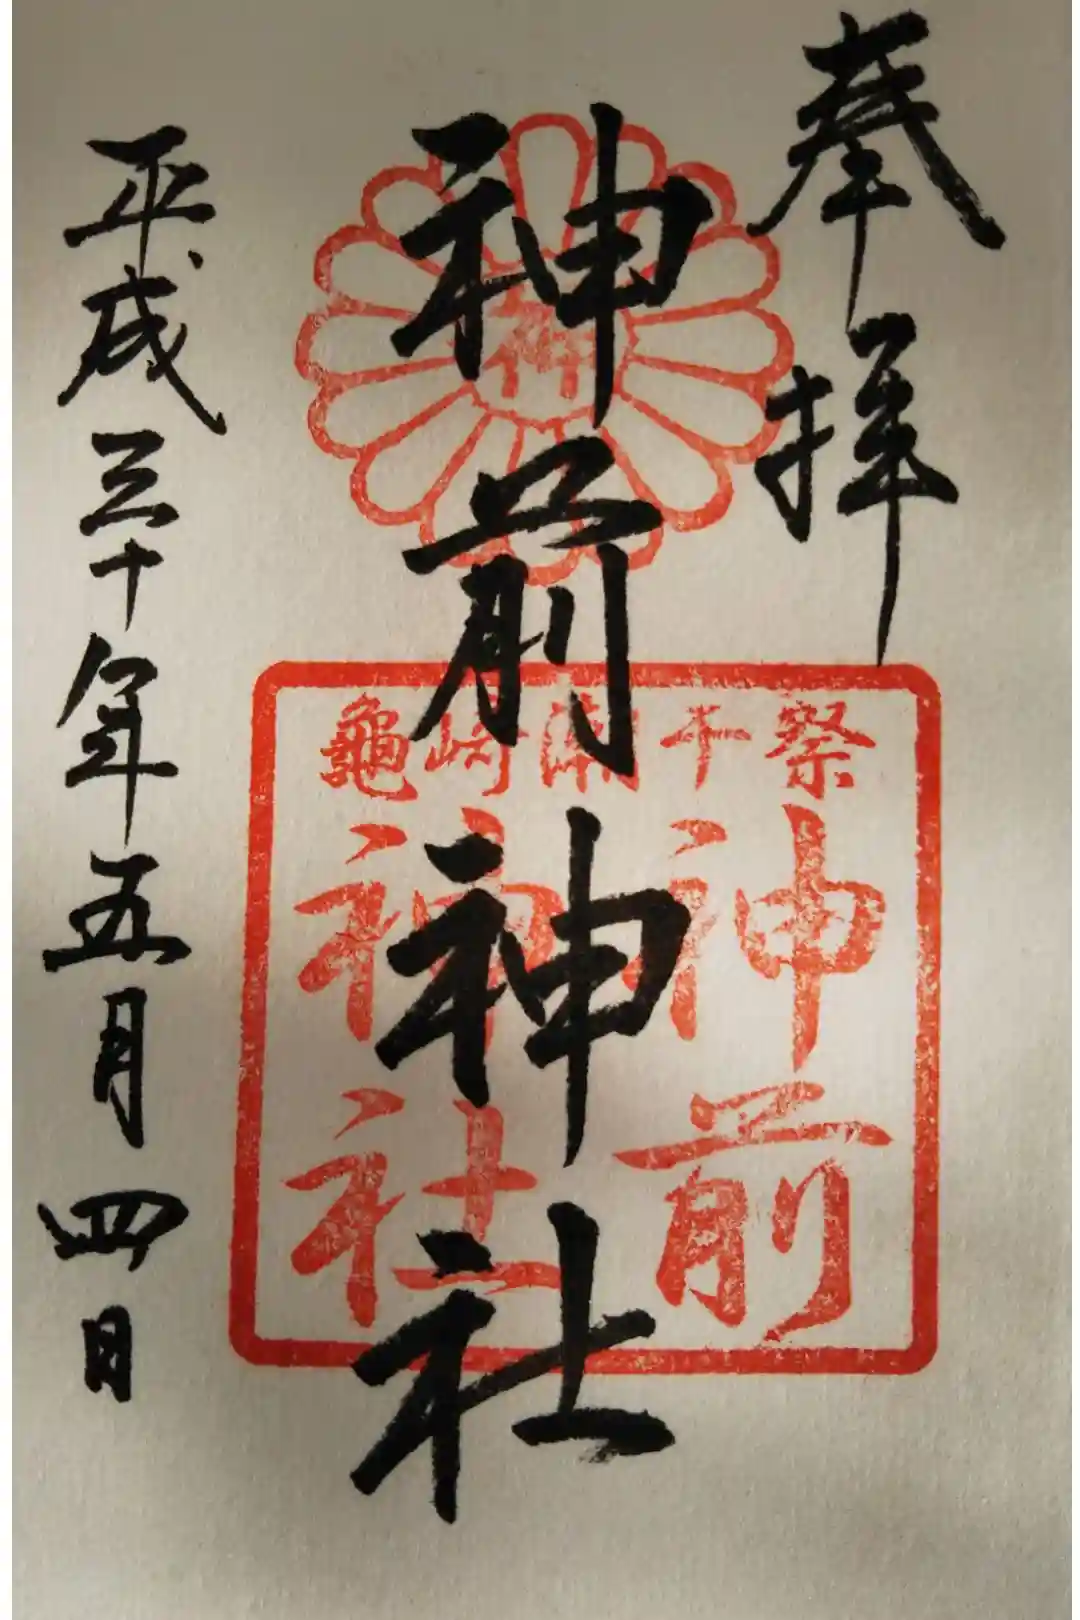 奉拝
神前神社
平成三十年五月四日
龜崎潮干祭
神前
神社